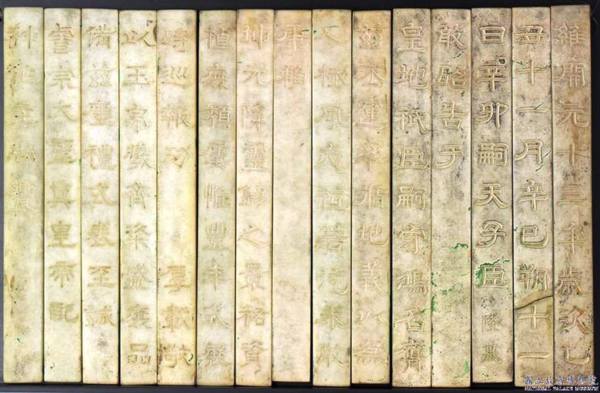 維開元十三年歲次乙
丑十一月辛巳朔十一
日辛卯嗣天子臣隆基
敢昭告于
皇地祇臣嗣守鴻名膺
茲丕運率循地義以為
人極夙夜祗若汔未敢
康賴
坤元降靈錫之景祐資
植庶類屢惟豐年式展
時巡報功 厚載敬
以玉帛犧齊粢盛庶品
備茲瘞禮式表至誠
睿宗大聖真皇帝配
神作主尚饗
國立故宮博物院
NATIONAL PALACE MUSEUM